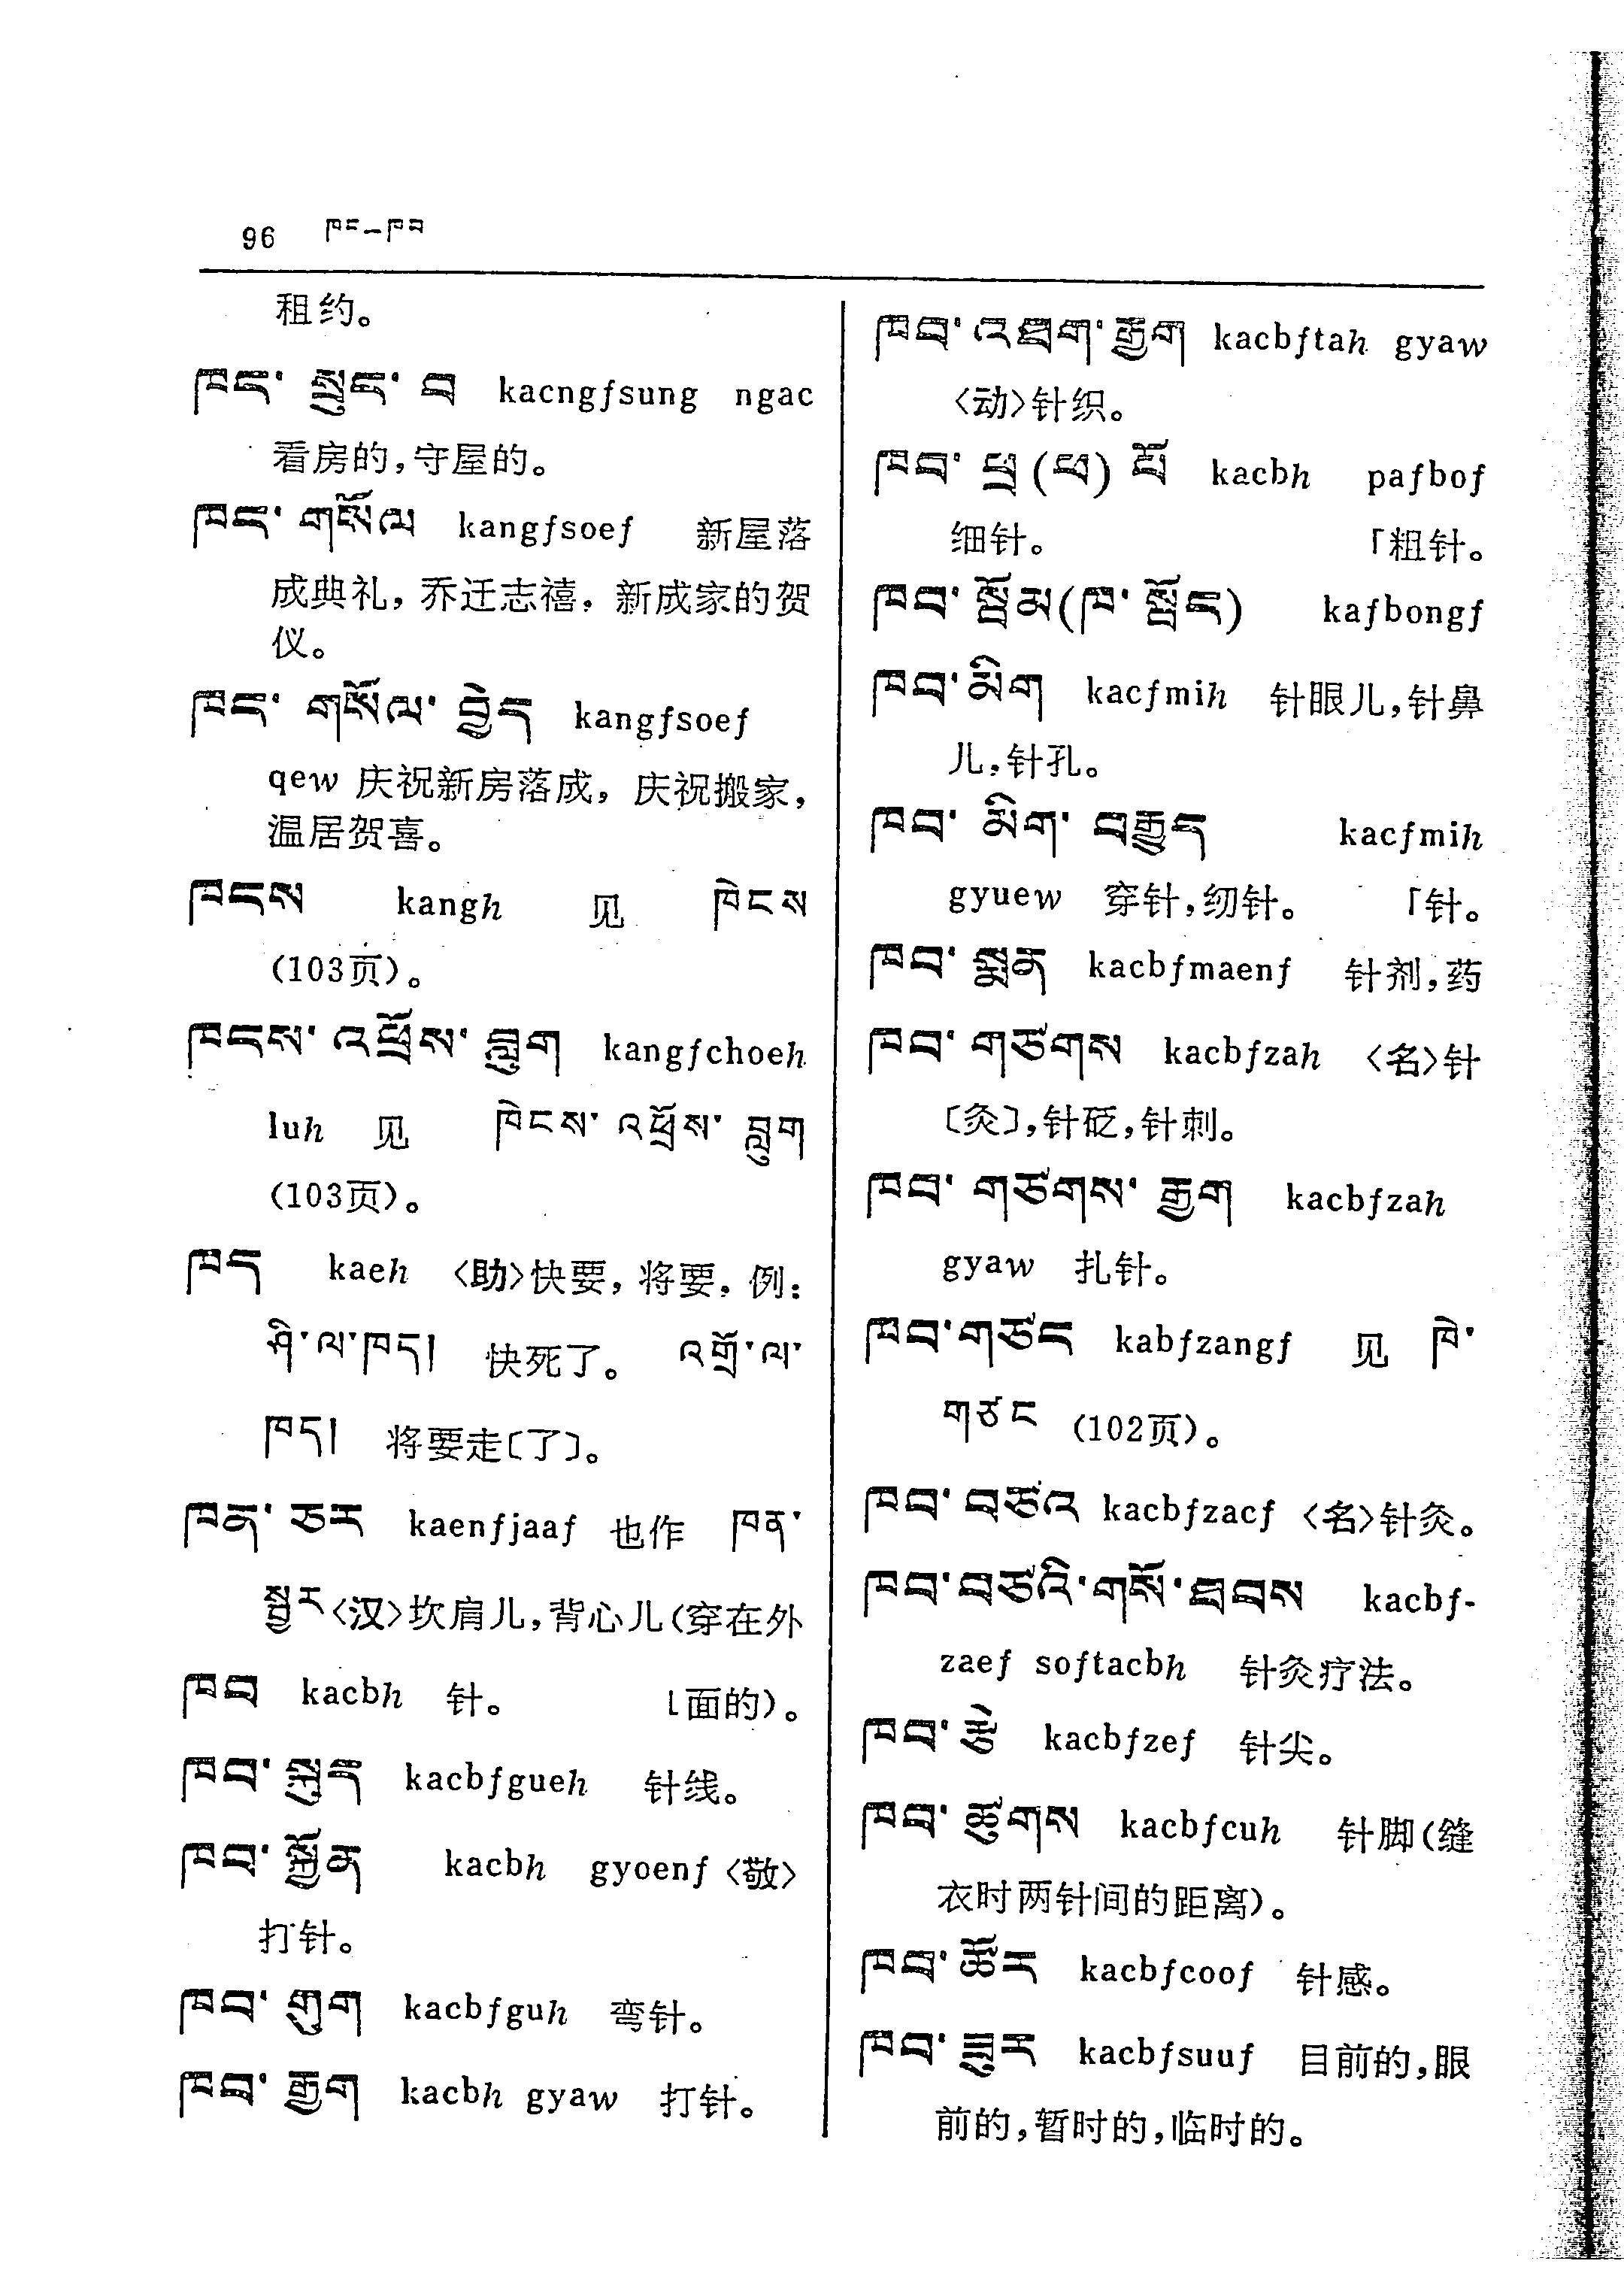 96 ཁང–ཁབ
租约。
ཁང་ སྲུང་ བ kacngfsung ngac
看房的,守屋的。
ཁང་ གསོལ kangfsoef 新屋落
成典礼, 乔迁志禧, 新成家的贺
仪。
ཁང་ གསོལ་ བྱེད kangfsoef
qew 庆祝新房落成, 庆祝搬家,
温居贺喜。
ཁངས kangh 见 ཁེངས
(103页)。
ཁངས་ འཕྲོས་ བླུག kangfchoeh
luh 见 ཁེངས་ འཕྲོས་ བླུག
(103页)。
ཁད kaeh 〈助〉快要, 将要, 例:
ཤི་ལ་ཁད། 快死了。 འགྲོ་ལ་
ཁད། 将要走〔了〕。
ཁན་ ཅར kaenfjaaf 也作 ཁན་
སྦྱར〈汉〉坎肩儿,背心儿(穿在外
ཁབ kacbh 针。 〔面的)。
ཁབ་ སྐུད kacbfgueh 针线。
ཁབ་ སྐྱོན kacbh gyoenf〈敬〉
打针。
ཁབ་ གུག kacbfguh 弯针。
ཁབ་ རྒྱག kacbh gyaw 打针。
ཁབ་ འཐག་ རྒྱག kacbftah gyaw
〈动〉针织。
ཁབ་ ཕྲ (ཕ) པོ kacbh pafbof
细针。 「粗针。
ཁབ་ སྦོམ(ཁ་ སྦོང) kafbongf
ཁབ་ མིག kacfmih 针眼儿,针鼻
儿,针孔。
ཁབ་ མིག་ བརྒྱུད kacfmih
gyuew 穿针,纫针。 「针。
ཁབ་ སྨན kacbfmaenf 针剂,药
ཁབ་ གཙགས kacbfzah 〈名〉针
〔灸〕,针砭,针刺。
ཁབ་ གཙགས་ རྒྱག kacbfzah
gyaw 扎针。
ཁབ་གཙང kabfzangf 见 ཁེ་
གཙང (102页)。
ཁབ་ བཙའ kacbfzacf 〈名〉针灸。
ཁབ་བཙའི་གསོ་ཐབས kacbf-
zaef softacbh 针灸疗法。
ཁབ་ རྩེ kacbfzef 针尖。
ཁབ་ ཚུགས kacbfcuh 针脚(缝
衣时两针间的距离)。
ཁབ་ ཚོར kacbfcoof 针感。
ཁབ་ ཟུར kacbfsuuf 目前的,眼
前的,暂时的,临时的。